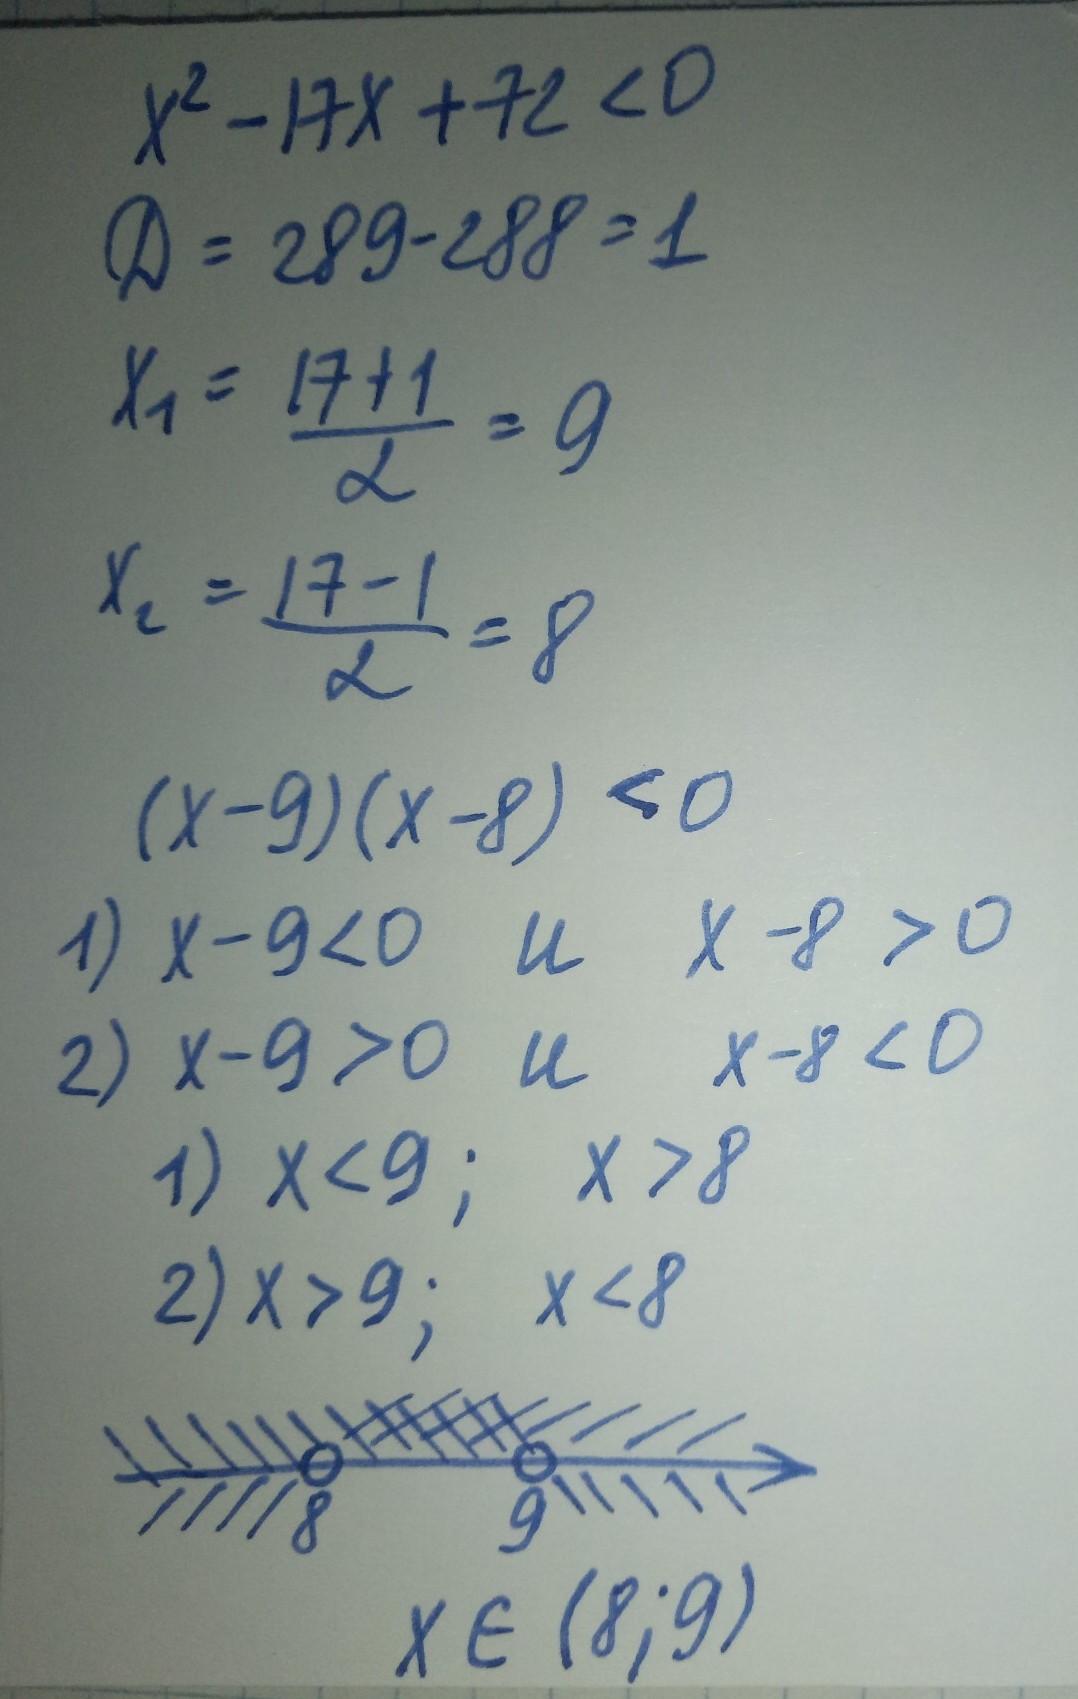 x² - 17x + 72 < 0
D = 289 - 288 = 1
x₁ = (17+1)/2 = 9
x₂ = (17-1)/2 = 8
(x-9)(x-8) < 0
1) x-9<0 и x-8>0
2) x-9>0 и x-8<0
1) x<9; x>8
2) x>9; x<8
8 9
x ∈ (8;9)